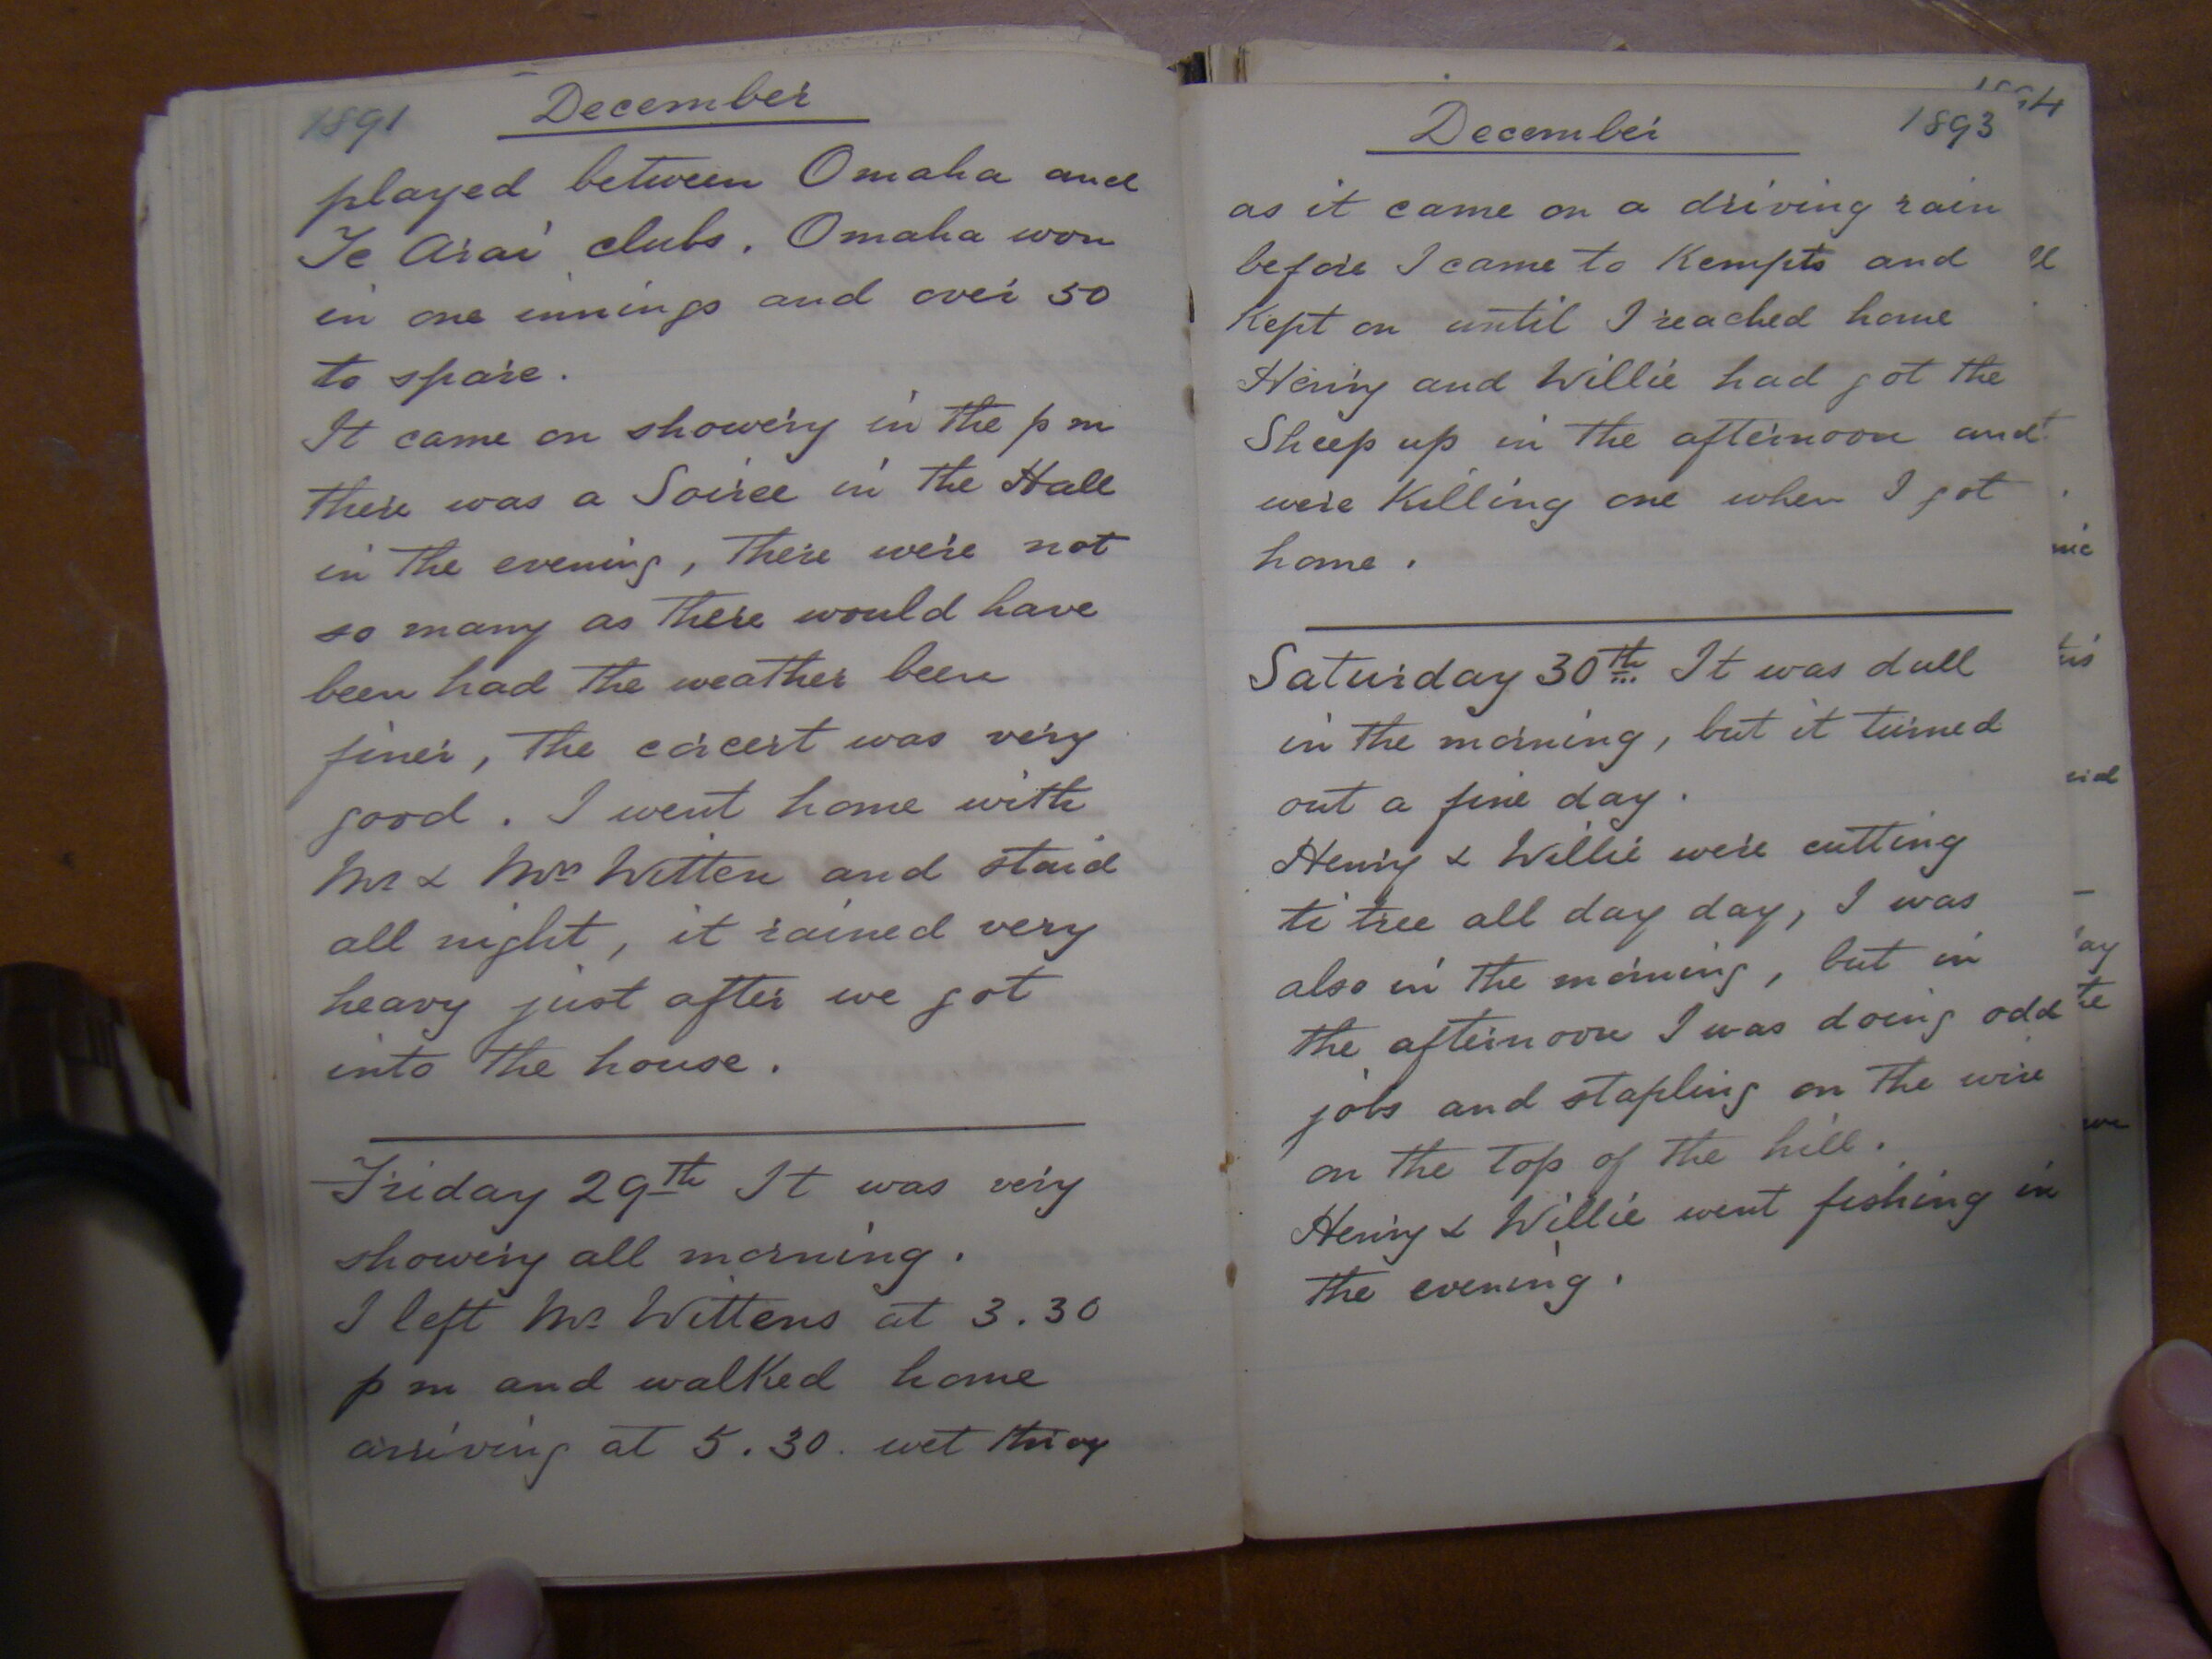 1891 December
played between Omaha and
Te Arai clubs. Omaha won
in one innings and over 50
to spare.
It came on showery in the p m
there was a Soiree in the Hall
in the evening, there were not
so many as there would have
been had the weather been
finer, the cocert was very
good. I went home with
Mr & Mrs Witten and staid
all night, it rained very
heavy just after we got
into the house.
Friday 29th It was very
showery all morning.
I left Mr Wittens at 3.30
p m and walked home
arriving at 5.30. wet
December 1893
as it came on a driving rain
before I came to Kempts and
Kept on until I reached home
Henry and Willie had got the
Sheep up in the afternoon and
were Killing one when I got
home.
Saturday 30th It was dull
in the morning, but it turned
out a fine day.
Henry & Willie were cutting
ti tree all day day, I was
also in the morning, but in
the afternoon I was doing odd
jobs and stapling on the wire
on the top of the hill.
Henry & Willie went fishing in
the evening.